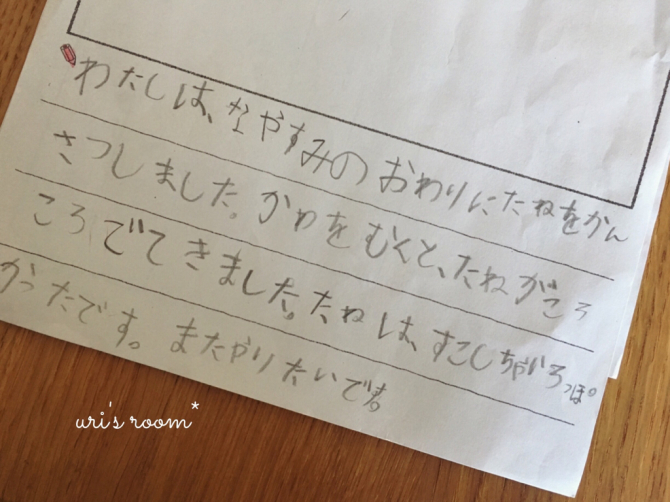 わたしは、なやすみのおわりにたねをかん
さつしました。かわをむくと、たねがころ
ころでてきました。たねは、すこしちゃいろっぽ
かったです。またやりたいです。
uri's room*